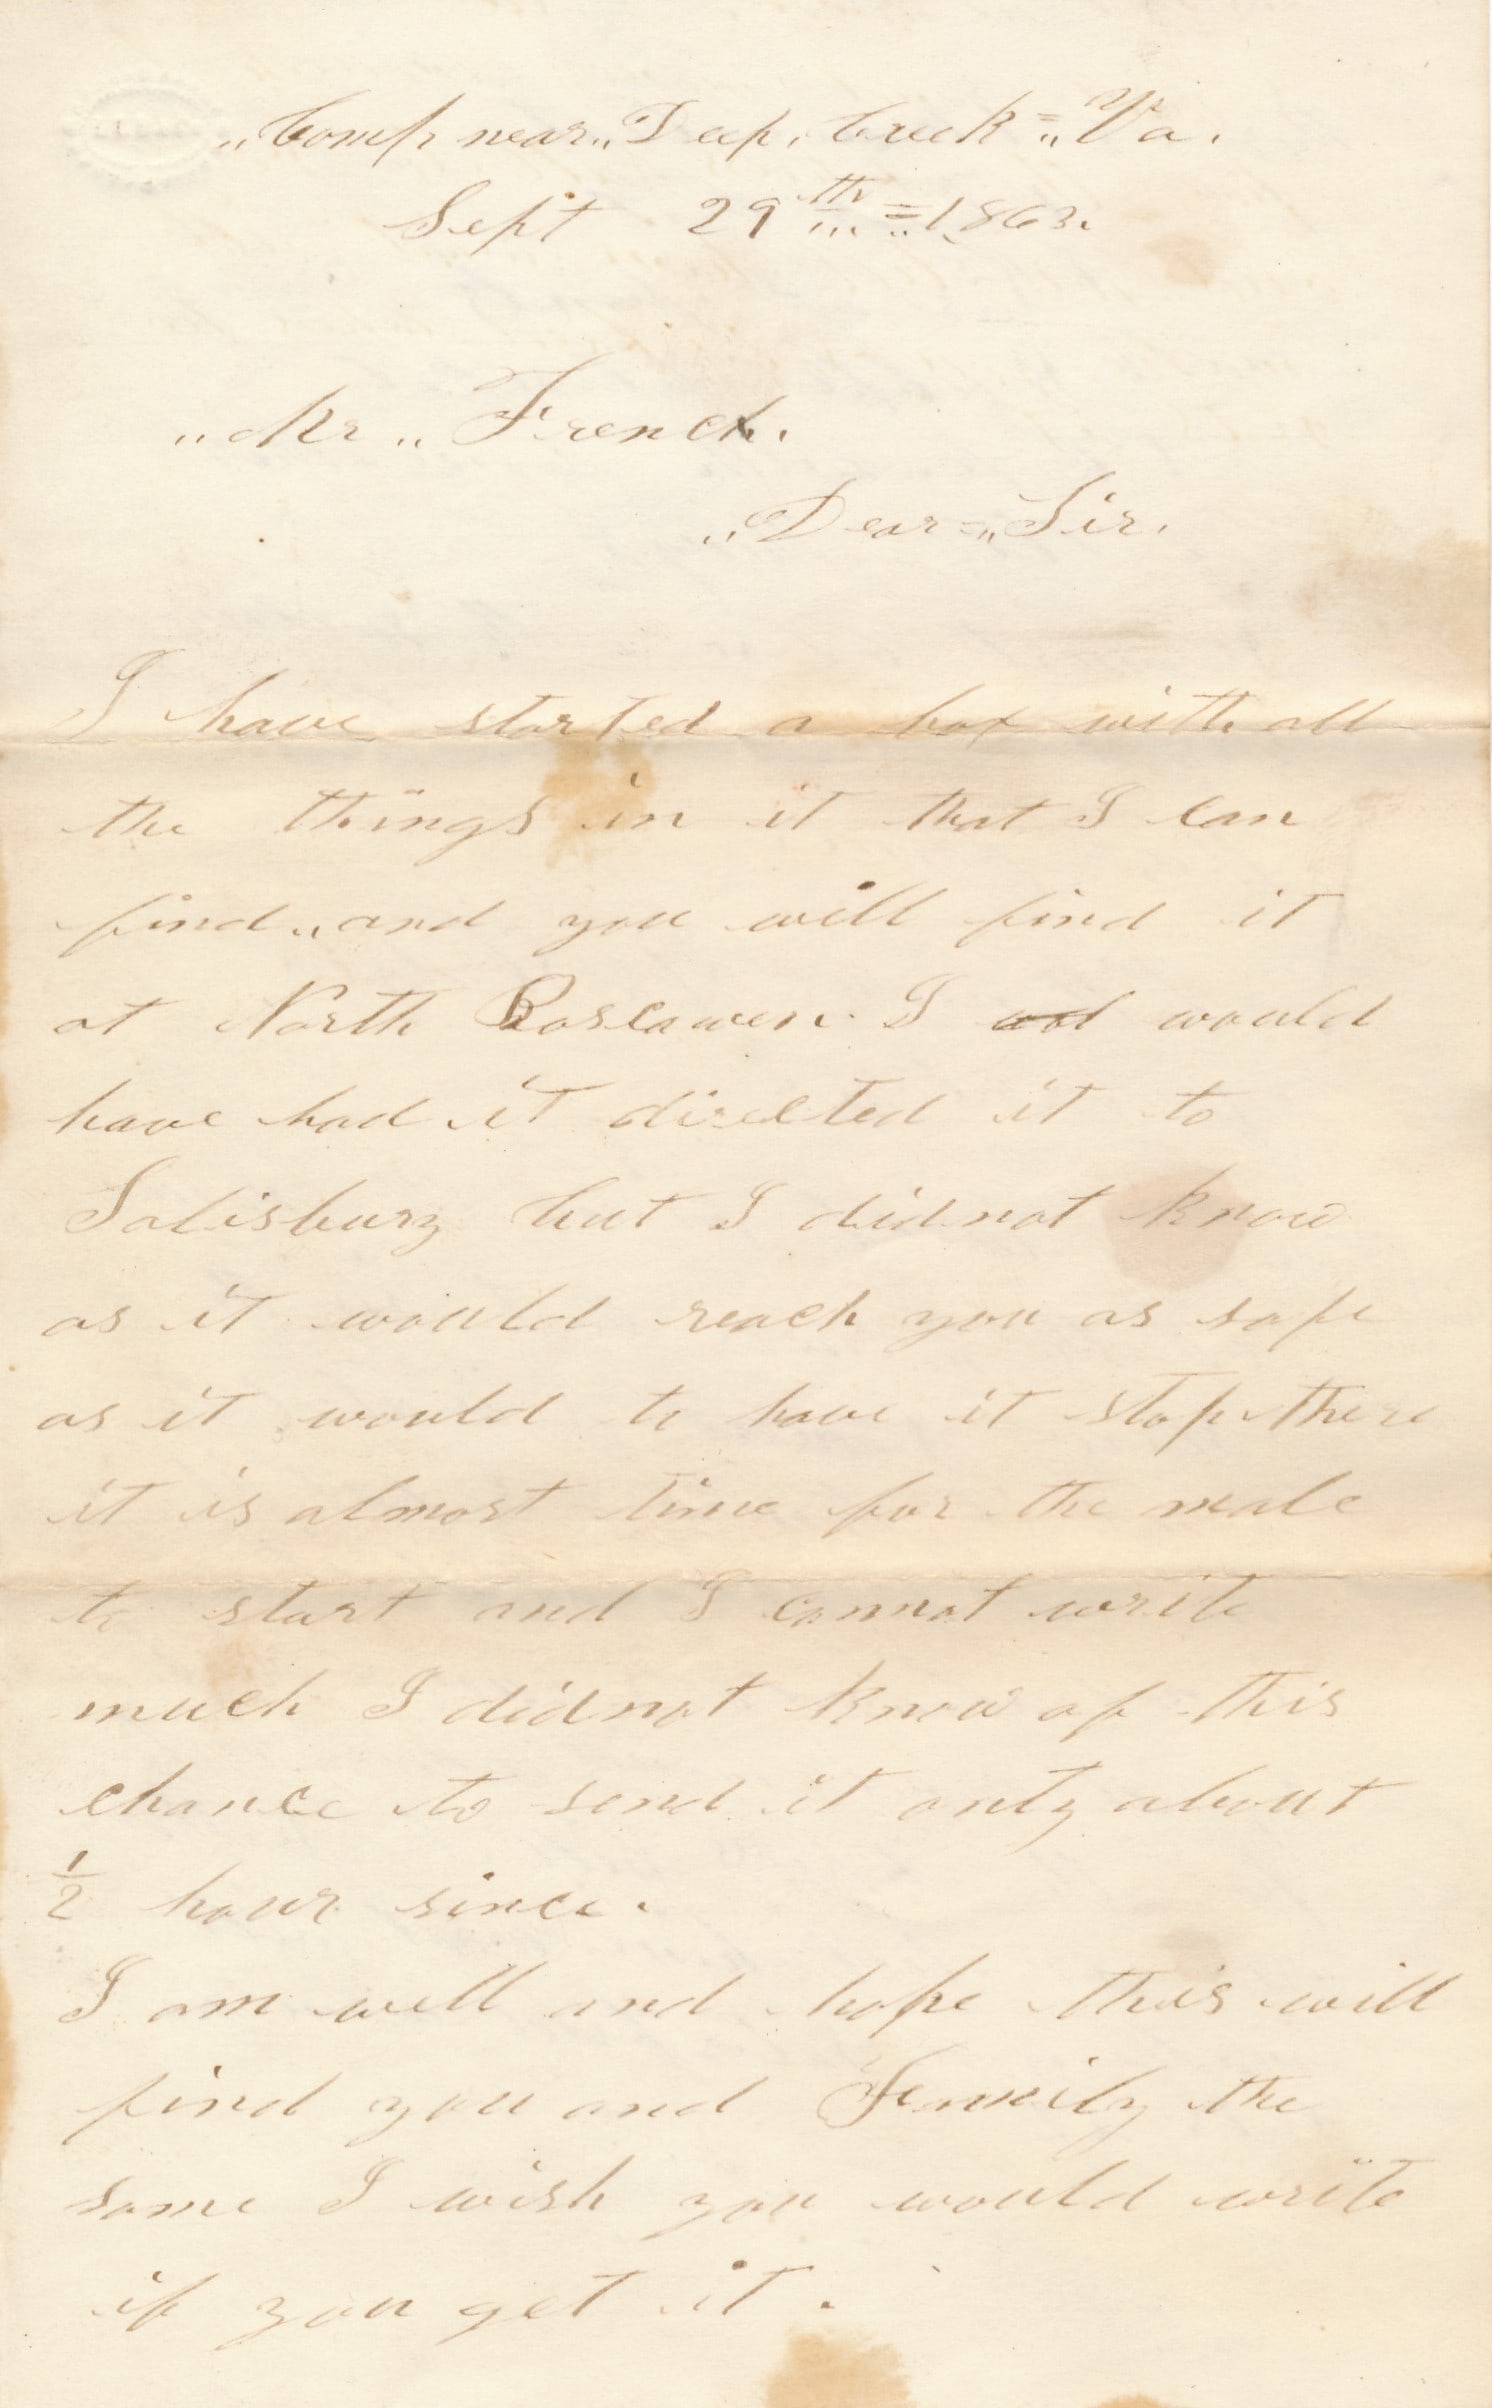 „Camp near „Deep, Creek = „Va.
Sept 29th = 1863.
„Mr „French.
„Dear = „Sir.
I have started a box with all
the things in it that I can
find „and you will find it
at North Boscawen. I wod would
have had it directed it to
Salisbury but I did not know
as it would reach you as safe
as it would to have it stop there
it is almost time for the male
to start and I cannot write
much I did not know of this
chance to send it only about
½ hour since.
I am well and hope this will
find you and Family the
same I wish you would write
if you get it.